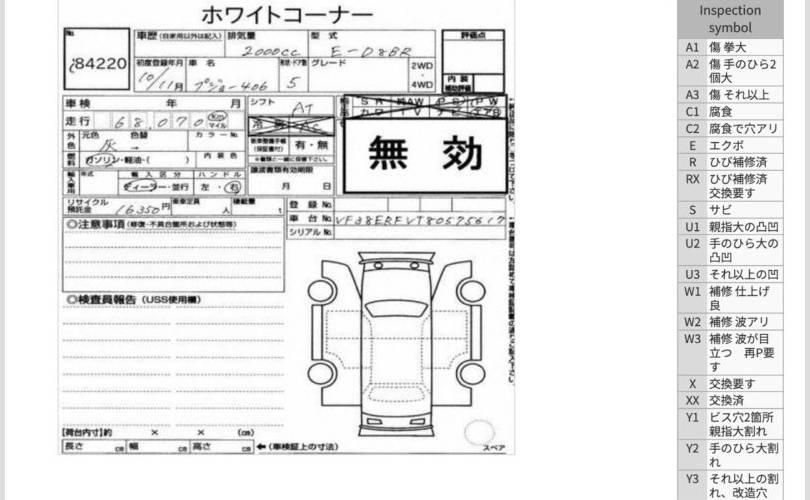 ホワイトコーナー
No.
84220
車歴(自家用以外は記入)
排気量
型式
評価点
2000cc
E-D8BR
初度登録年月
車名
形状・ドア数
グレード
2WD
・
4WD
内装
補助評価
10/11月
プジョー406
5
車検 年 月
シフト
AT
走行
68,070
km
マイル
冷房
AC
SR
AW
PS
PW
カワ
TV
ナビ
エアB
無効
外色
元色
色替
カラーNo.
灰 →
新車整備手帳
(保証書付)
有・無
※書類と一緒に保管下さい。
燃料
ガソリン・軽油・( )
内装色
譲渡書類有効期限
月 日
輸入車用
年式
輸入区分
ハンドル
ディーラー・並行
左・右
リサイクル
預託金
16350円
乗車定員
人
積載量
t
登録No.
車台No.
VF38ERFVT80575617
シリアルNo.
◎注意事項(修復・不具合箇所および状態等)
◎検査員報告(USS使用欄)
【荷台内寸】約 × × (cm)
長さ cm 幅 cm 高さ cm ←(車検証上の寸法)
スペア
Inspection
symbol
A1 傷 拳大
A2 傷 手のひら2
個大
A3 傷 それ以上
C1 腐食
C2 腐食で穴アリ
E エクボ
R ひび補修済
RX ひび補修済
交換要す
S サビ
U1 親指大の凸凹
U2 手のひら大の
凸凹
U3 それ以上の凹
W1 補修 仕上げ
良
W2 補修 波アリ
W3 補修 波が目
立つ 再P要
す
X 交換要す
XX 交換済
Y1 ビス穴2箇所
親指大割れ
Y2 手のひら大割
れ
Y3 それ以上の割
れ、改造穴